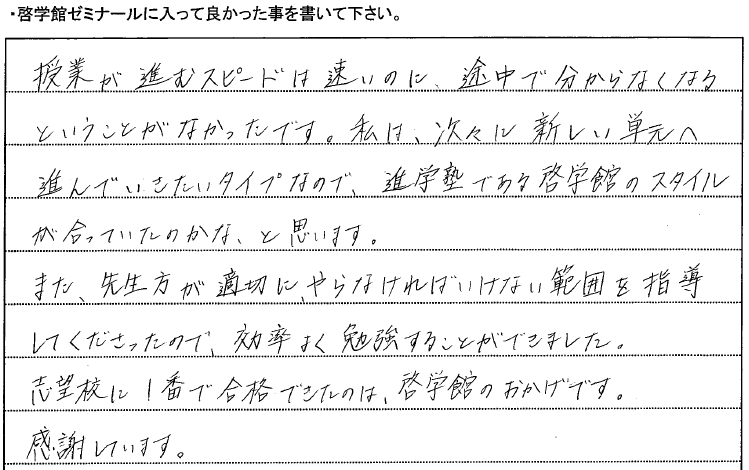 ・啓学館ゼミナールに入って良かった事を書いて下さい。
授業が進むスピードは速いのに、途中で分からなくなる
ということがなかったです。私は、次々に新しい単元へ
進んでいきたいタイプなので、進学塾である啓学館のスタイル
が合っていたのかな、と思います。
また、先生方が適切に、やらなければいけない範囲を指導
してくださったので、効率よく勉強することができました。
志望校に1番で合格できたのは、啓学館のおかげです。
感謝しています。